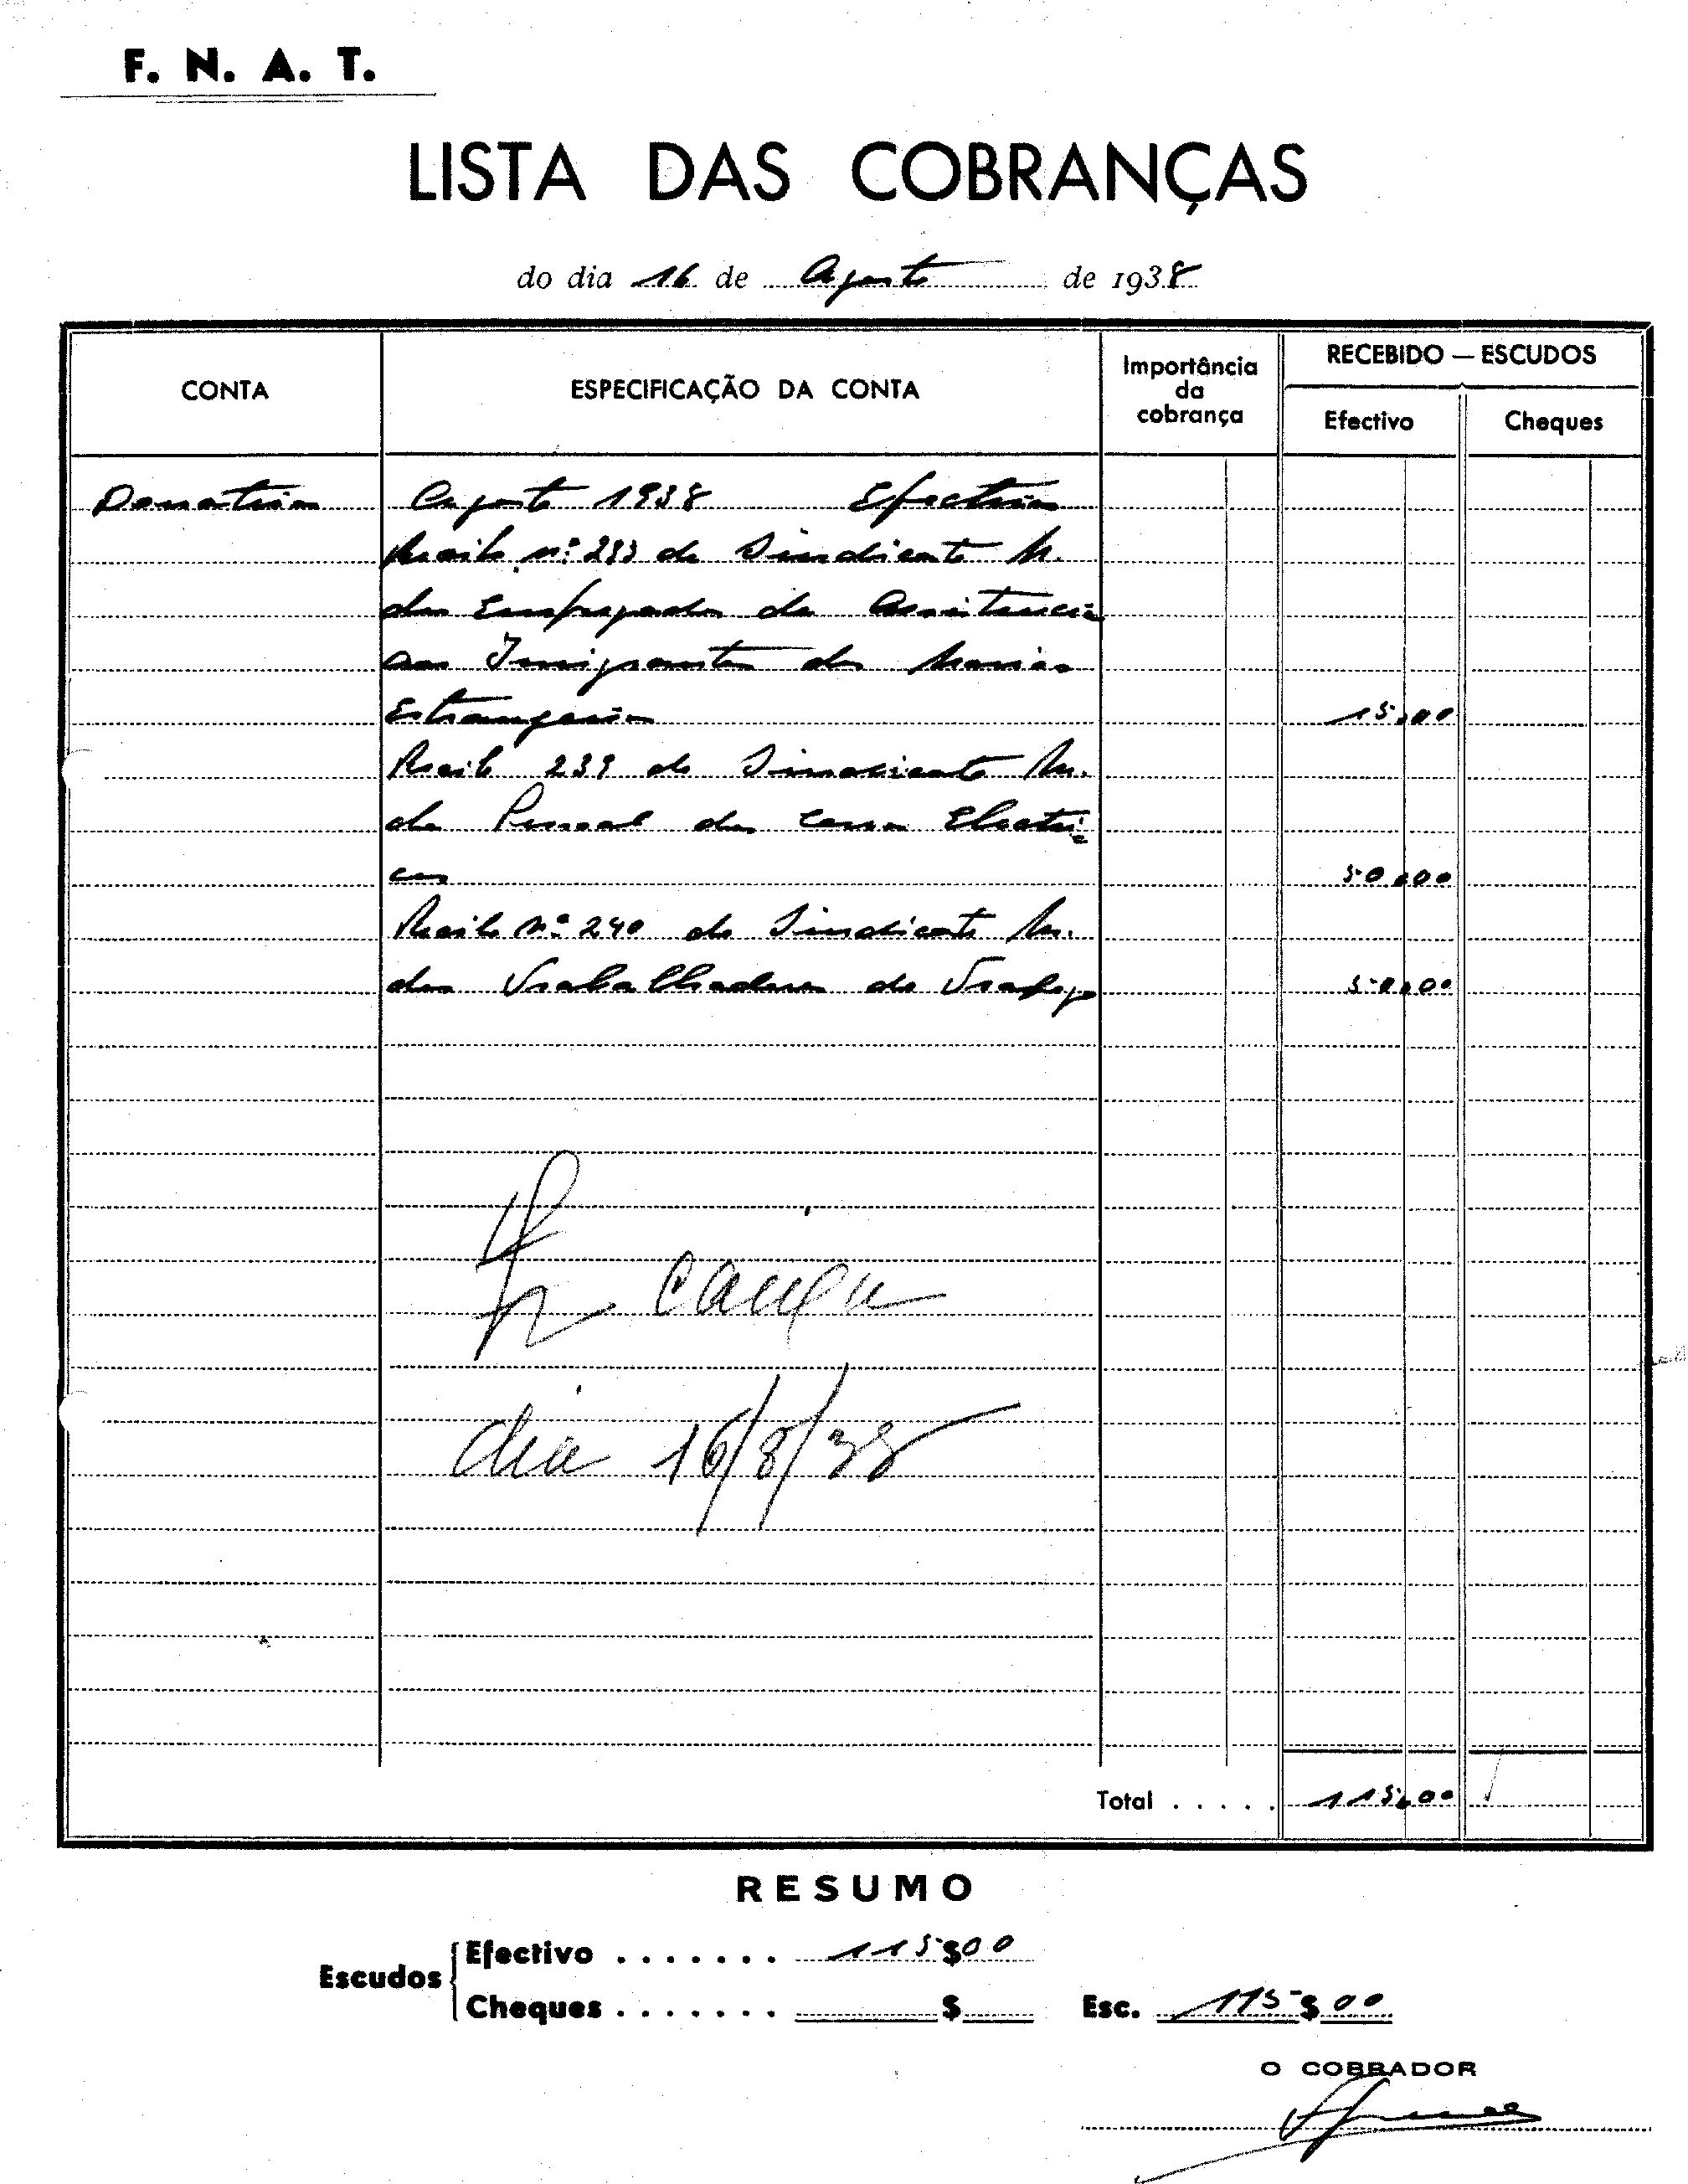 F. N. A. T.
LISTA DAS COBRANÇAS
do dia 16 de Agosto de 1938
CONTA
ESPECIFICAÇÃO DA CONTA
Importância
da
cobrança
RECEBIDO — ESCUDOS
Efectivo
Cheques
Donativos Agosto 1938 Efectivos
Recibo nº 233 do Sindicato N.
dos Empregados da Assistencia
aos Imigrantes dos Navios
Estrangeiros 15,00
Recibo 239 do Sindicato N.
do Pessoal dos Carros Electri-
cos 50,00
Recibo Nº 240 do Sindicato N.
dos Trabalhadores do Trafego 50,00
Caixa
dia 16/8/38
Total . . . . . 115,00
RESUMO
Escudos
Efectivo . . . . . . . 115$00
Cheques . . . . . . . $
Esc. 115$00
O COBRADOR